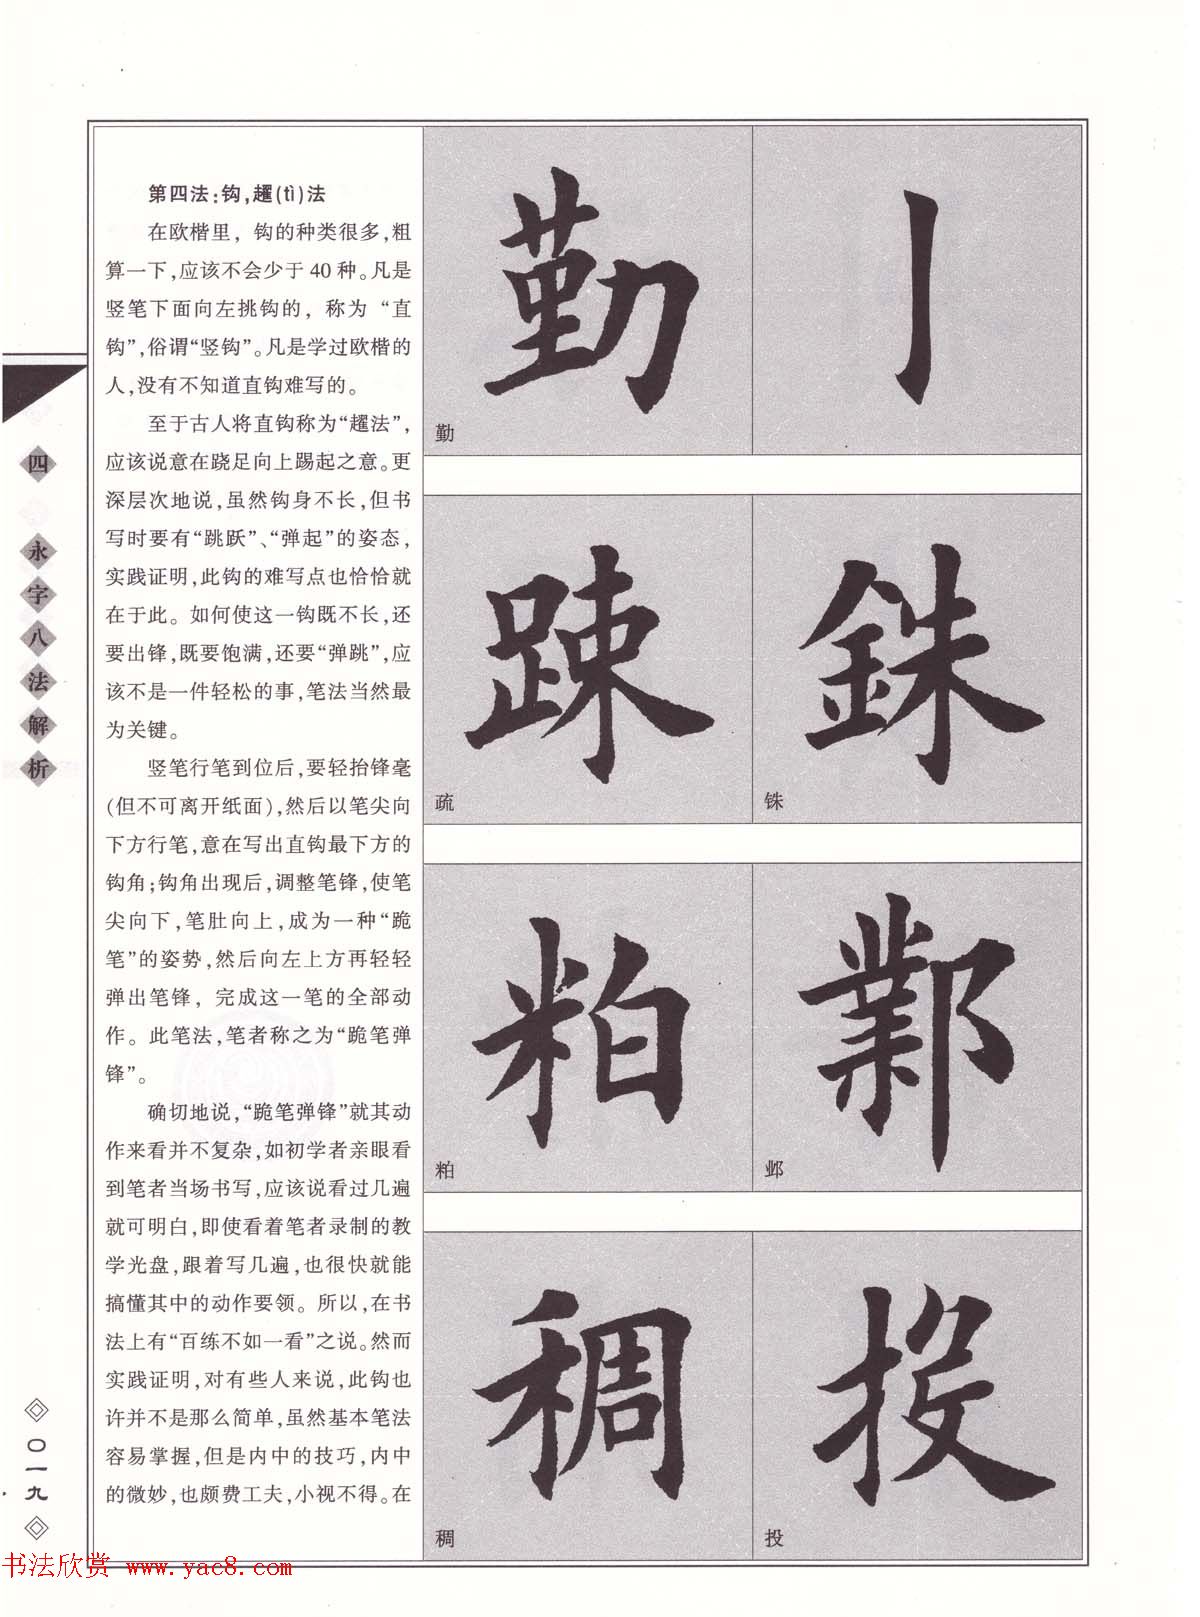 第四法：钩，趯(tì)法
在欧楷里，钩的种类很多，粗
算一下，应该不会少于 40 种。凡是
竖笔下面向左挑钩的，称为“直
钩”，俗谓“竖钩”。凡是学过欧楷的
人，没有不知道直钩难写的。
至于古人将直钩称为“趯法”，
应该说意在跷足向上踢起之意。更
深层次地说，虽然钩身不长，但书
写时要有“跳跃”、“弹起”的姿态，
实践证明，此钩的难写点也恰恰就
在于此。如何使这一钩既不长，还
要出锋，既要饱满，还要“弹跳”，应
该不是一件轻松的事，笔法当然最
为关键。
竖笔行笔到位后，要轻抬锋毫
(但不可离开纸面)，然后以笔尖向
下方行笔，意在写出直钩最下方的
钩角；钩角出现后，调整笔锋，使笔
尖向下，笔肚向上，成为一种“跪
笔”的姿势，然后向左上方再轻轻
弹出笔锋，完成这一笔的全部动
作。此笔法，笔者称之为“跪笔弹
锋”。
确切地说，“跪笔弹锋”就其动
作来看并不复杂，如初学者亲眼看
到笔者当场书写，应该说看过几遍
就可明白，即使看着笔者录制的教
学光盘，跟着写几遍，也很快就能
搞懂其中的动作要领。所以，在书
法上有“百练不如一看”之说。然而
实践证明，对有些人来说，此钩也
许并不是那么简单，虽然基本笔法
容易掌握，但是内中的技巧，内中
的微妙，也颇费工夫，小视不得。在
勤
丨
勤
踈
銖
疏
铢
粕
鄴
粕
邺
稠
投
稠
投
四 永字八法解析
〇一九
书法欣赏 www.yac8.com